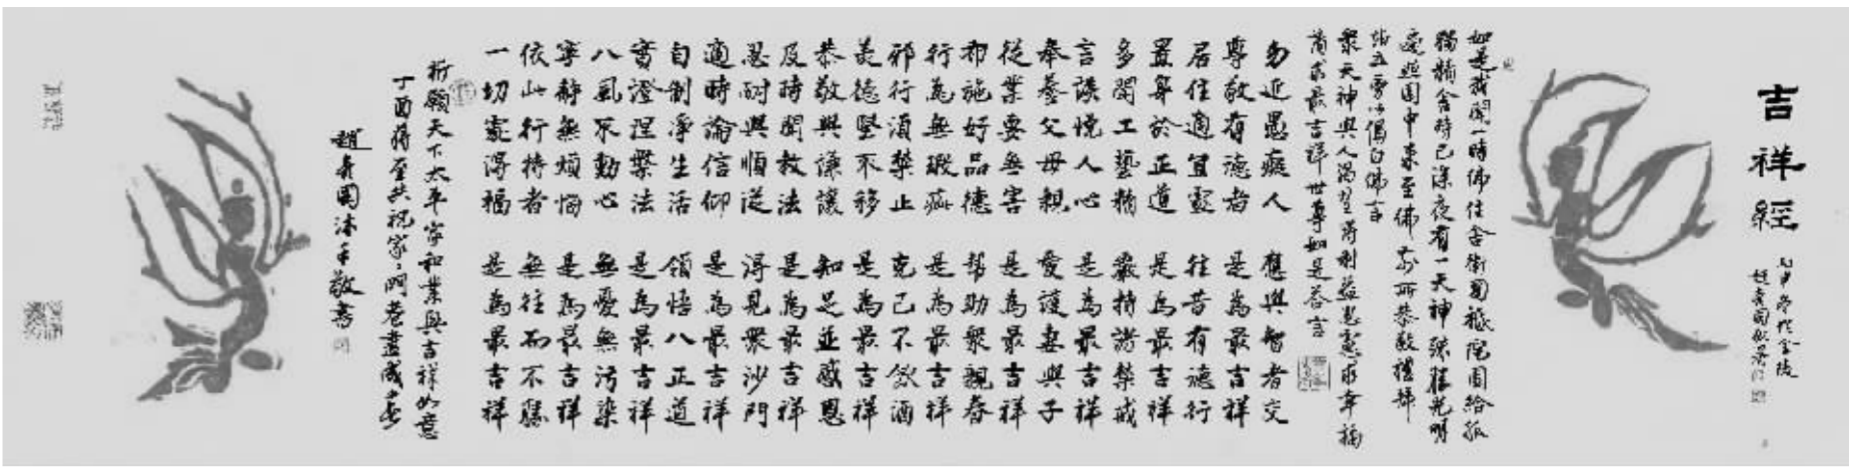 吉祥經
如是我聞一時佛住舍衛國祇陀園給孤
獨精舍時已深夜有一天神殊勝光明
遍照園中來至佛前所恭敬禮拜
站立旁以偈白佛言
眾天神與人渴望荷利益思慮求幸福
請求最吉祥世尊如是答言
勿近愚癡人 應與智者交
尊敬有德者 是為最吉祥
居住適宜處 往昔有德行
置身於正道 是為最吉祥
多聞工藝精 嚴持諸禁戒
言談悅人心 是為最吉祥
奉養父母親 愛護妻與子
從業要無害 是為最吉祥
布施好品德 幫助眾親眷
行為無瑕疵 是為最吉祥
邪行須禁止 克己不飲酒
美德堅不移 是為最吉祥
恭敬與謙讓 知足並感恩
及時聞教法 是為最吉祥
忍耐與順從 得見眾沙門
適時論信仰 是為最吉祥
自制淨生活 領悟八正道
實證涅槃法 是為最吉祥
八風不動心 無憂無污染
寧靜無煩惱 是為最吉祥
依此行持者 無往而不勝
一切處得福 是為最吉祥
祈願天下太平家和業興吉祥如意